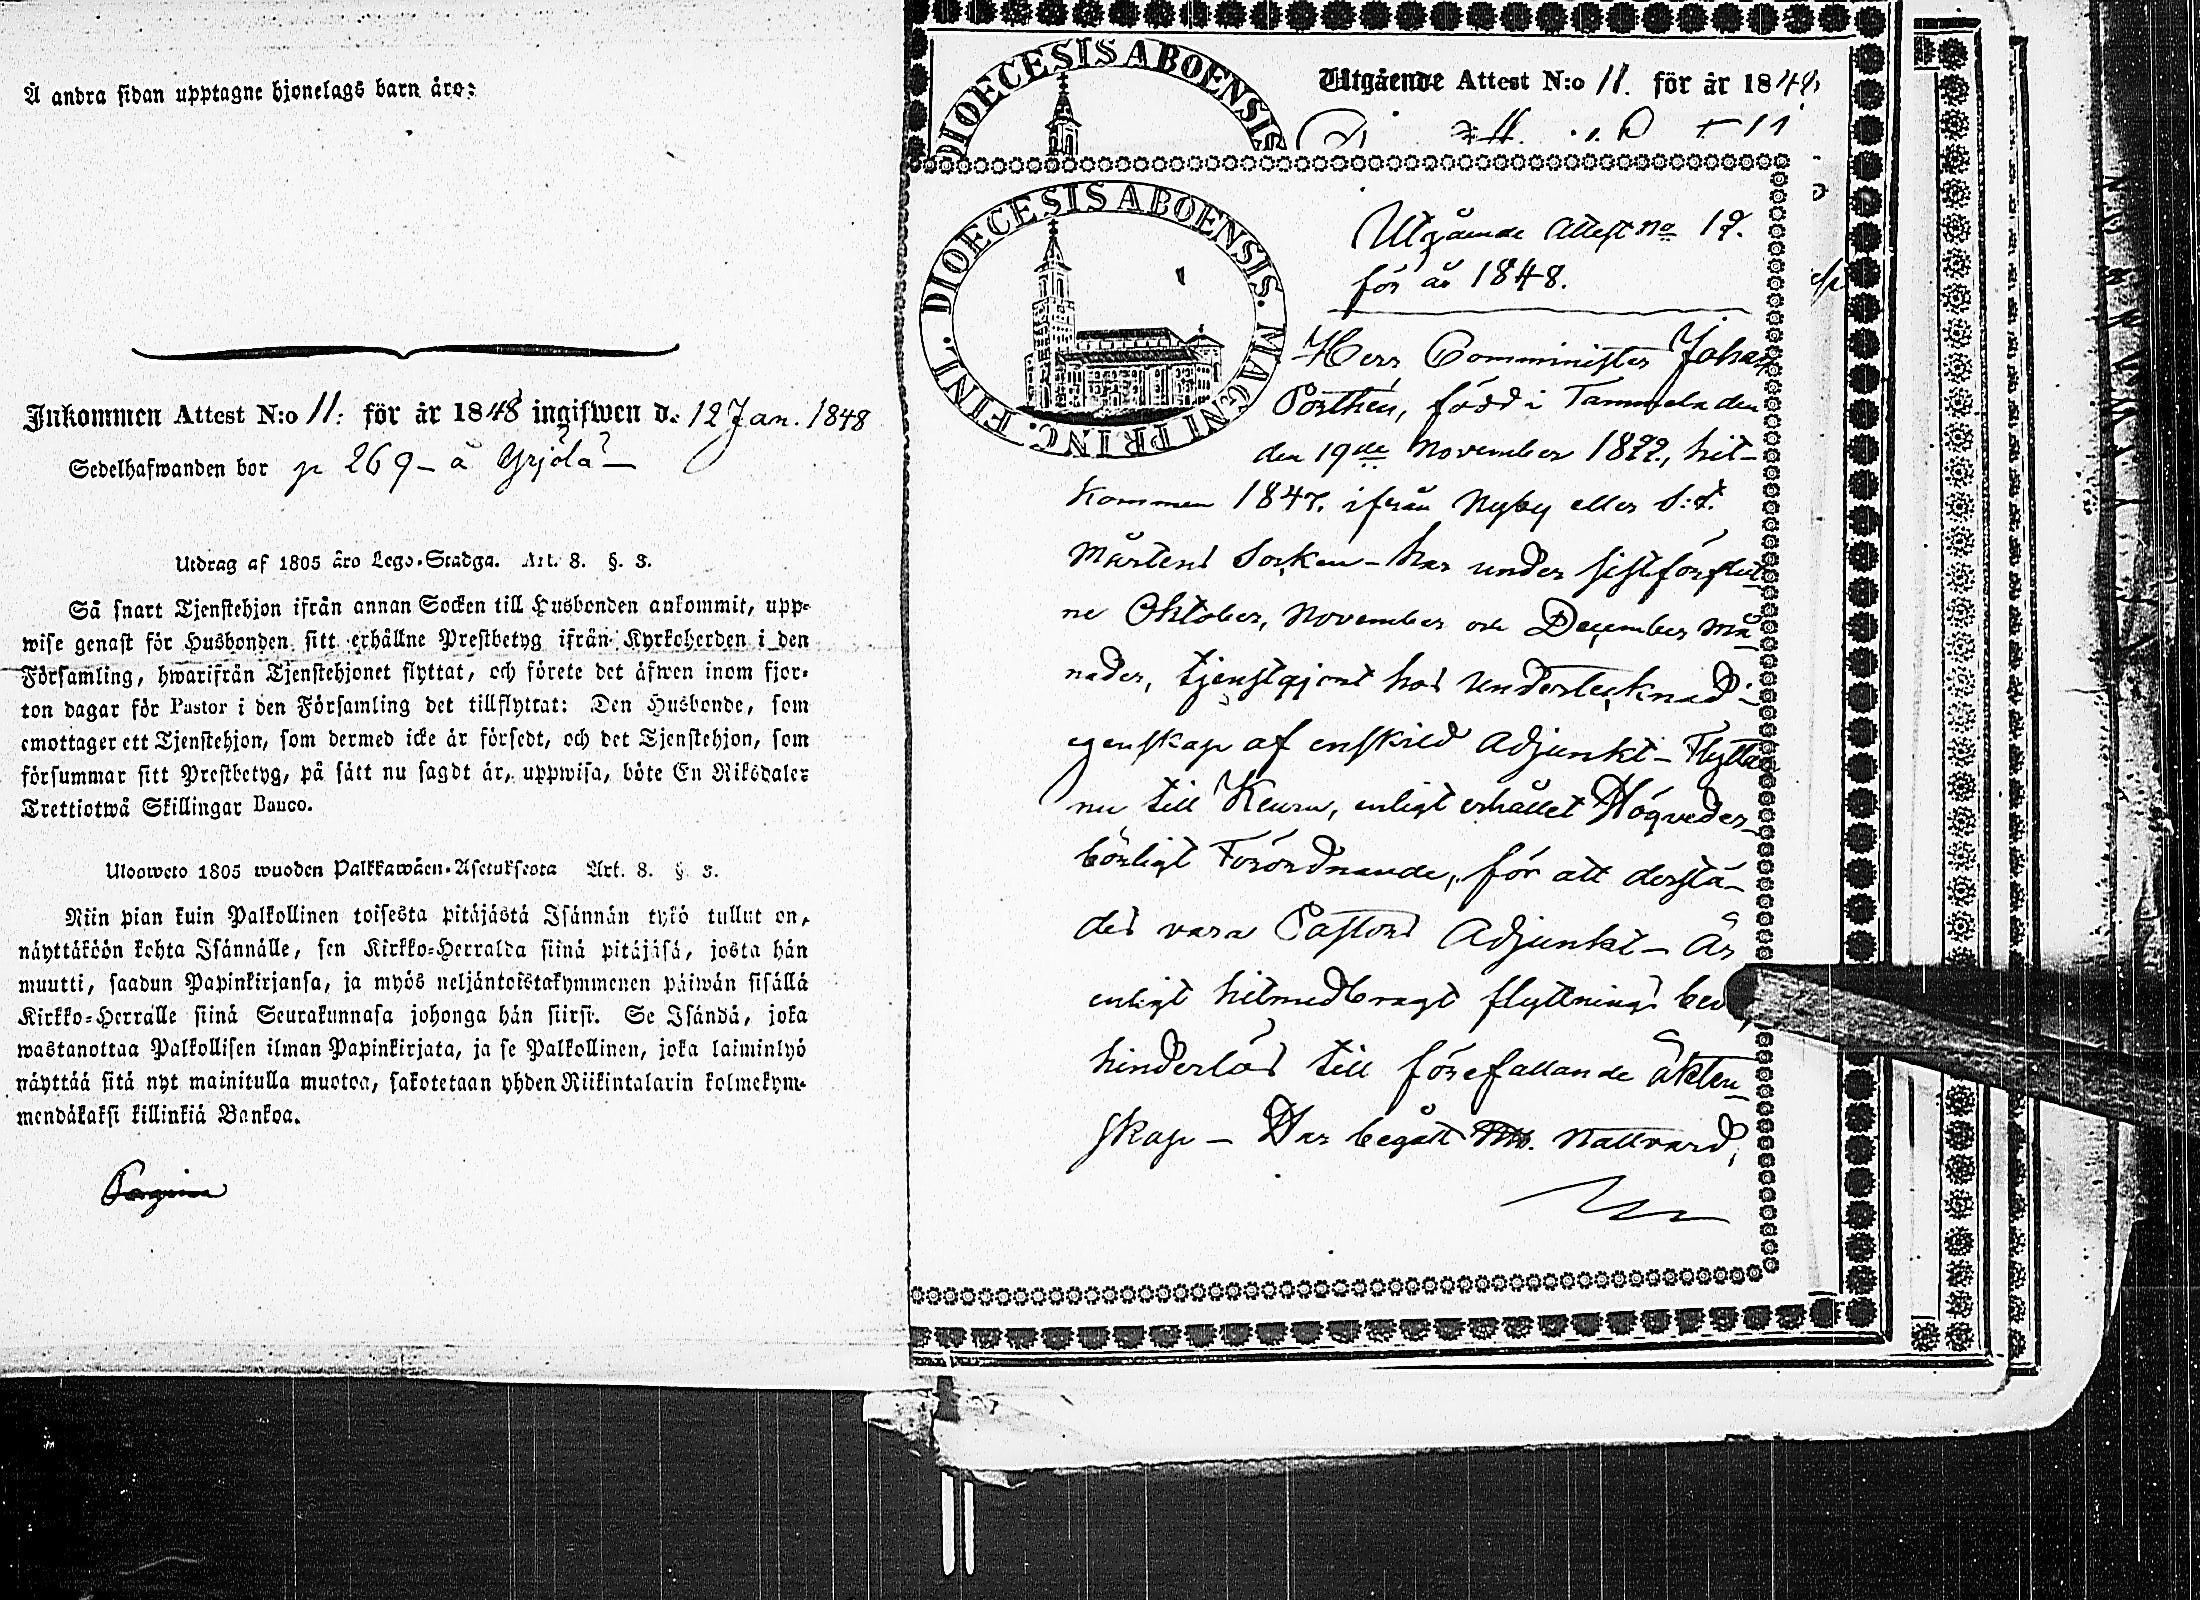 Å andra sidan upptagne hjonelags barn äro:
Inkommen Attest N:o 11: för år 1848 ingifwen d. 12 Jan. 1848
Sedelhafwanden bor p 269 - å Yrjölä -
Utdrag af 1805 års Lego-Stadga. Art. 8. §. 3.
Så snart Tjenstehjon ifrån annan Socken till Husbonden ankommit, upp-
wise genast för Husbonden sitt erhållne Prestbetyg ifrån Kyrkoherden i den
Församling, hwarifrån Tjenstehjonet flyttat, och förete det äfwen inom fjor-
ton dagar för Pastor i den Församling det tillflyttat: Den Husbonde, som
emottager ett Tjenstehjon, som dermed icke är försedt, och det Tjenstehjon, som
försummar sitt Prestbetyg, på sätt nu sagdt är, uppwisa, böte En Riksdaler
Trettiotwå Skillingar Banco.
Ulosweto 1805 wuoden Palkkawäen-Asetuksesta Art. 8. §. 3.
Niin pian kuin Palkollinen toisesta pitäjästä Isännän tykö tullut on,
näyttäköön kohta Isännälle, sen Kirkko-Herralda siinä pitäjäsä, josta hän
muutti, saadun Papinkirjansa, ja myös neljäntoistakymmenen päiwän sisällä
Kirkko-Herralle siinä Seurakunnasa johonga hän siirsi. Se Isändä, joka
wastanottaa Palkollisen ilman Papinkirjata, ja se Palkollinen, joka laiminlyö
näyttää sitä nyt mainitulla muotoa, sakotetaan yhden Riikintalarin kolmekym-
mendäkaksi killinkiä Bankoa.
DIOECESIS ABOENSIS
Utgående Attest N:o 11. för år 1848
DIOECESIS ABOENSIS. MAGNI PRINC. FINL.
Utgående Attest No 12.
för år 1848.
Herr Comminister Johan
Porthén, född i Tammela den
den 19de November 1822, hit-
kommen 1847. ifrån Nyby eller S:t
Mårtens Socken - har under sistförflut
ne Oktober, November och December må
nader, tjenstgjort hos undertecknad i
egenskap af enskild Adjunkt - Flyttar
nu till Keuru, enligt erhållet Högveder-
börligt Förordnande, för att derstä-
des vara Pastors Adjunkt - Är
enligt hitmedbragt flyttnings
hinderlös till förefallande äkten-
skap - Har begått Nattvard,